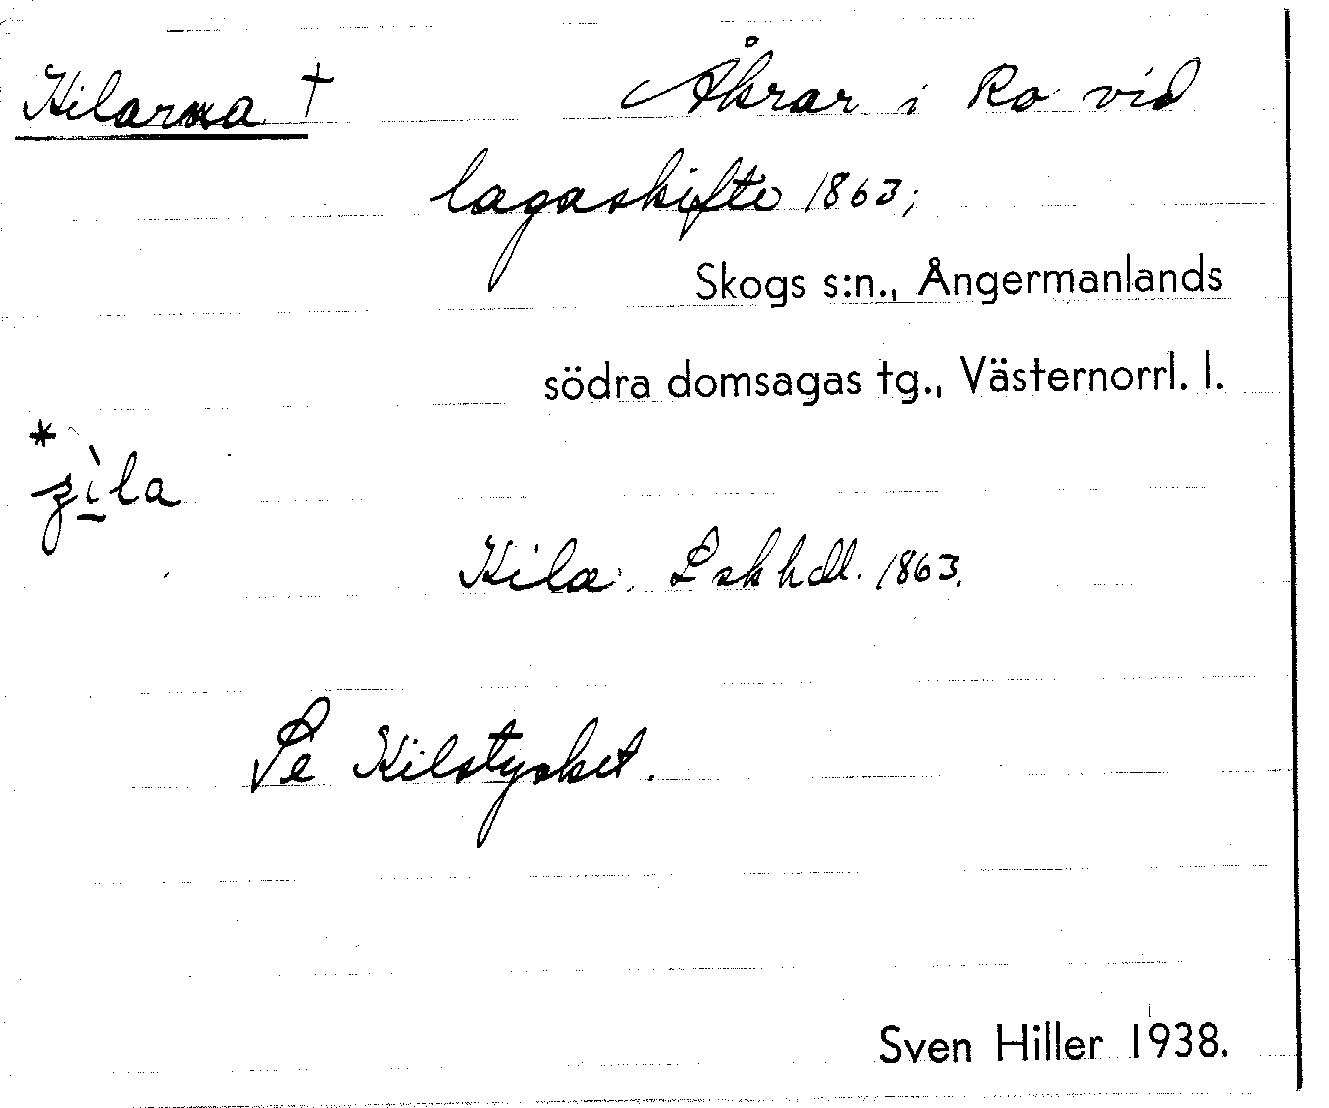 Kilarna † Åkrar i Ro vid
lagaskifte 1863;
Skogs s:n., Ångermanlands
södra domsagas tg., Västernorrl. l.
*
ʒìla
Kila. Lskhdl. 1863.
Se Kilstycket.
Sven Hiller 1938.